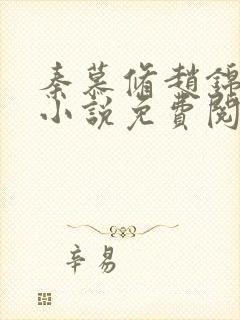 秦慕脩趙錦
小說免費閱
辛易